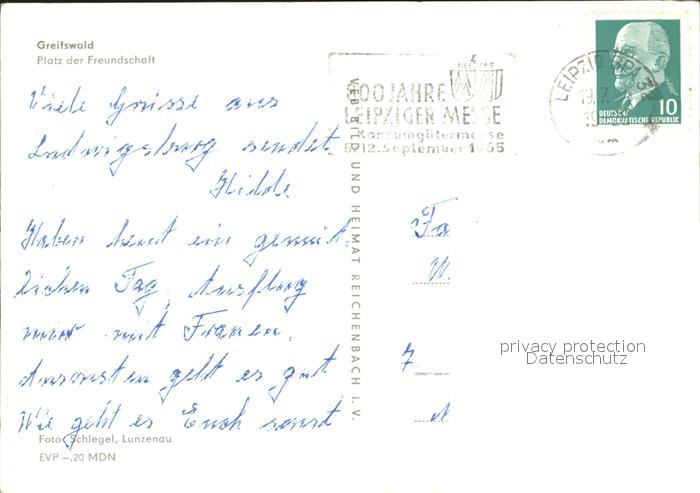 Greifswald
Platz der Freundschaft
800 JAHRE
LEIPZIGER MESSE
Konsumgütermesse
5.-12. September 1965
LEIPZIG BPA 32
19.7.
10
DEUTSCHE
DEMOKRATISCHE REPUBLIK
Viele Grüsse aus
Ludwigsburg sendet
Haben heut ein gemüt-
lichen Tag, Ausflug
mit Frauen.
Ansonsten geht es gut
Wie geht es Euch sonst
VEB BILD UND HEIMAT REICHENBACH I. V.
Fa
W.
7
privacy protection
Datenschutz
Foto: Schlegel, Lunzenau
EVP –,20 MDN